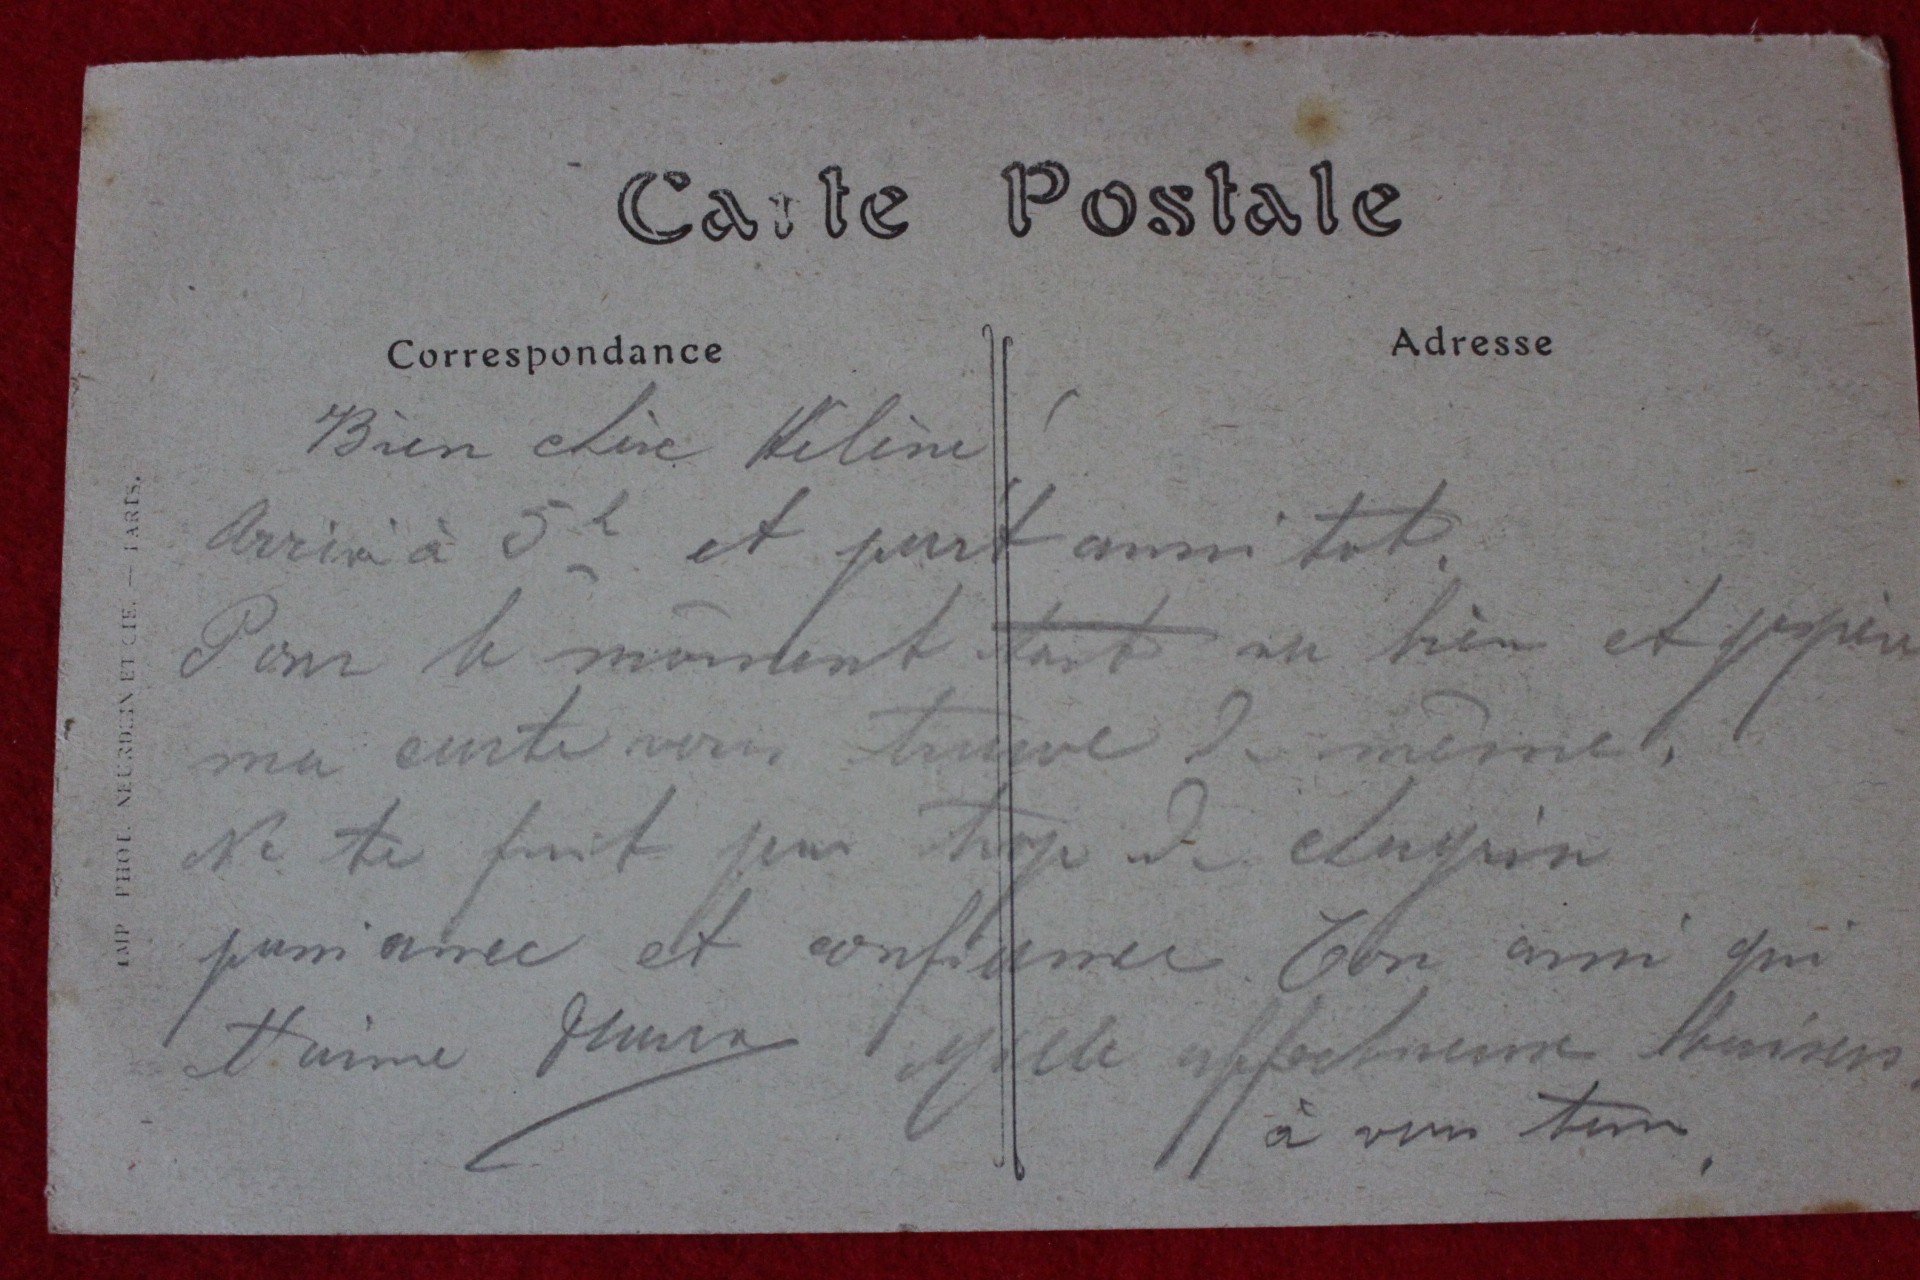 Carte Postale
Correspondance
Adresse
Bien chère Hélène
Arrivé à 5h et part aussi tot.
Pour le mōment tout va bien et j'espère
ma carte vous trouve de même.
Ne te fait pas trop de chagrin
patience et confiance. Ton ami qui
t'aime Mille affectueux baisers
à vous tous.
IMP. PHOT. NEURDEIN ET CIE. — PARIS.